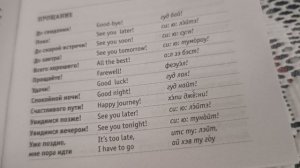 ПРОЩАНИЕ
До свидания! Good-bye! гуд бай!
Пока! See you later! си: ю: лэйтэ!
До скорой встречи! See you soon! си: ю: су:н!
До завтра! See you tomorrow! си: ю: тумороу!
Всего хорошего! All the best! о:л зэ бэст!
Прощайте! Farewell! феэуэл!
Удачи! Good luck! гуд лак!
Спокойной ночи! Good night! гуд найт!
Счастливого пути! Happy journey! хэпи джё:ни!
Увидимся позже! See you later! си: ю: лэйтэ!
Увидимся вечером! See you tonight! си: ю: тунайт!
Уже поздно, It's too late, итс ту: лэйт,
мне пора идти I have to go ай хэв ту гоу